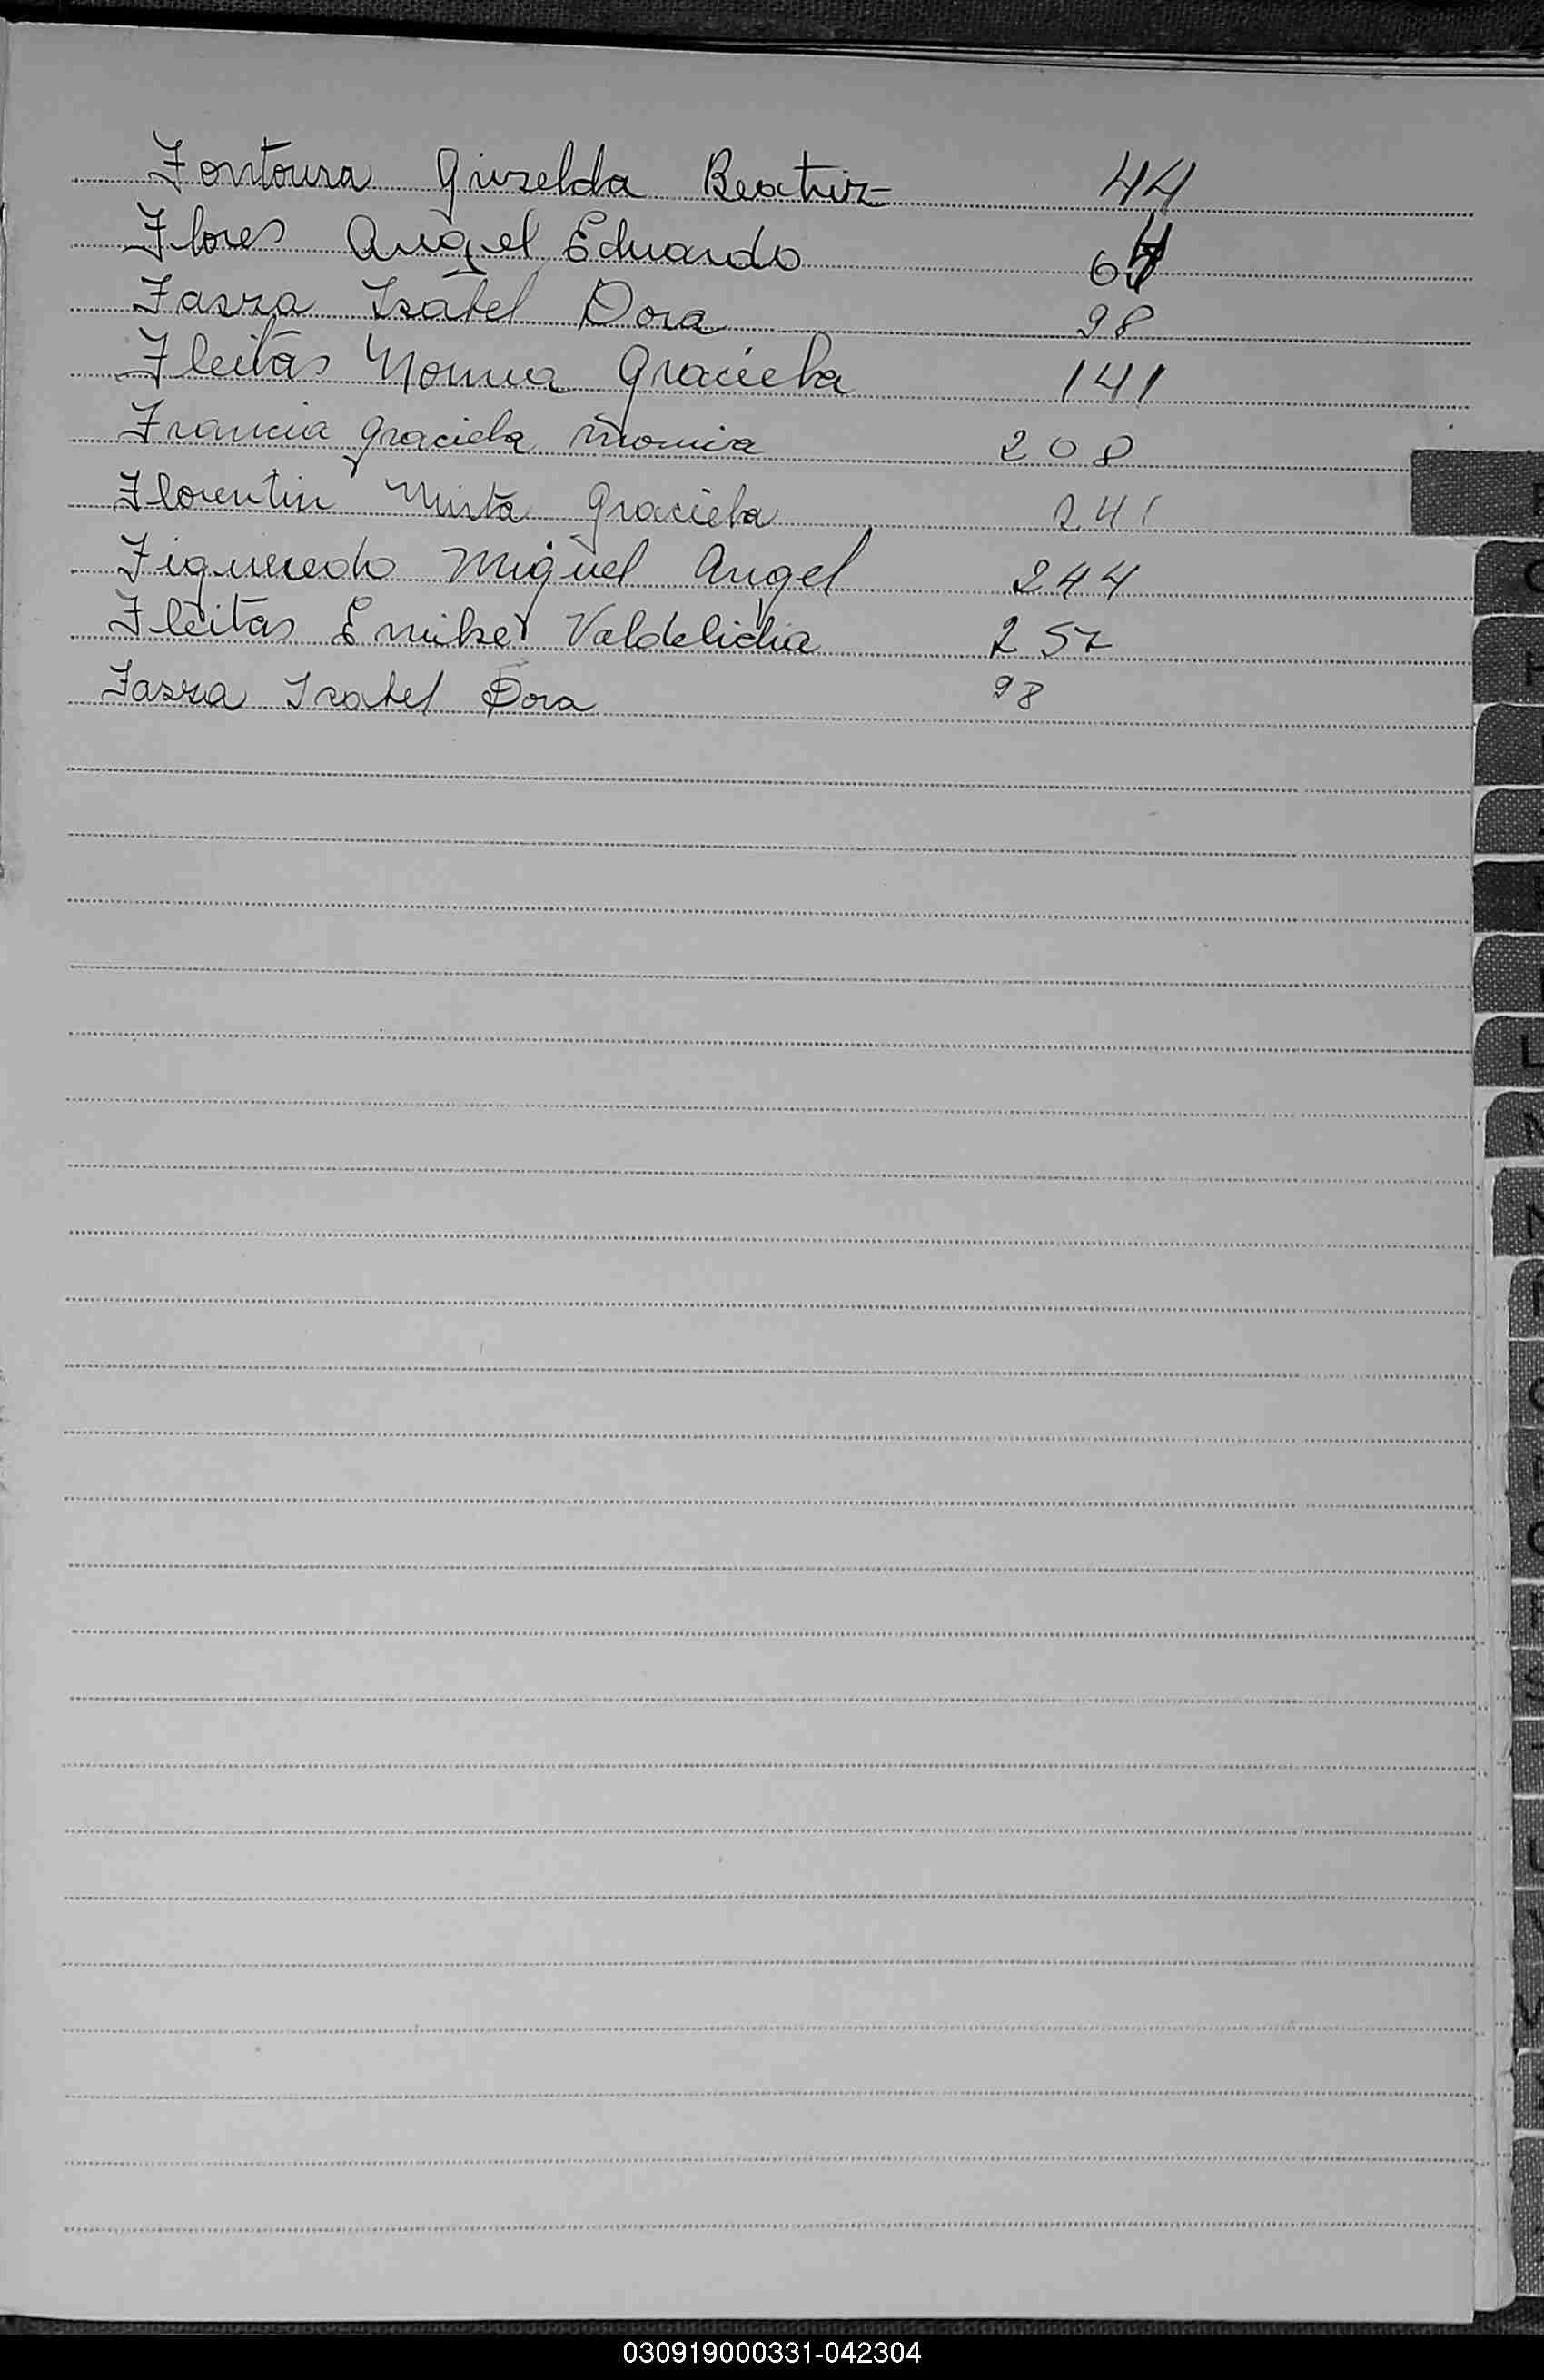 Fontoura Griselda Beatriz 44
Flores Angel Eduardo 64
Fasza Isabel Dora 98
Fleitas Norma Graciela 141
Francia Graciela 208
Florentin Mirta Graciela 241
Figueredo Miguel Angel 244
Fleitas Valdelidia 257
Fasza Isabel Dora 98
F
H
L
030919000331-042304